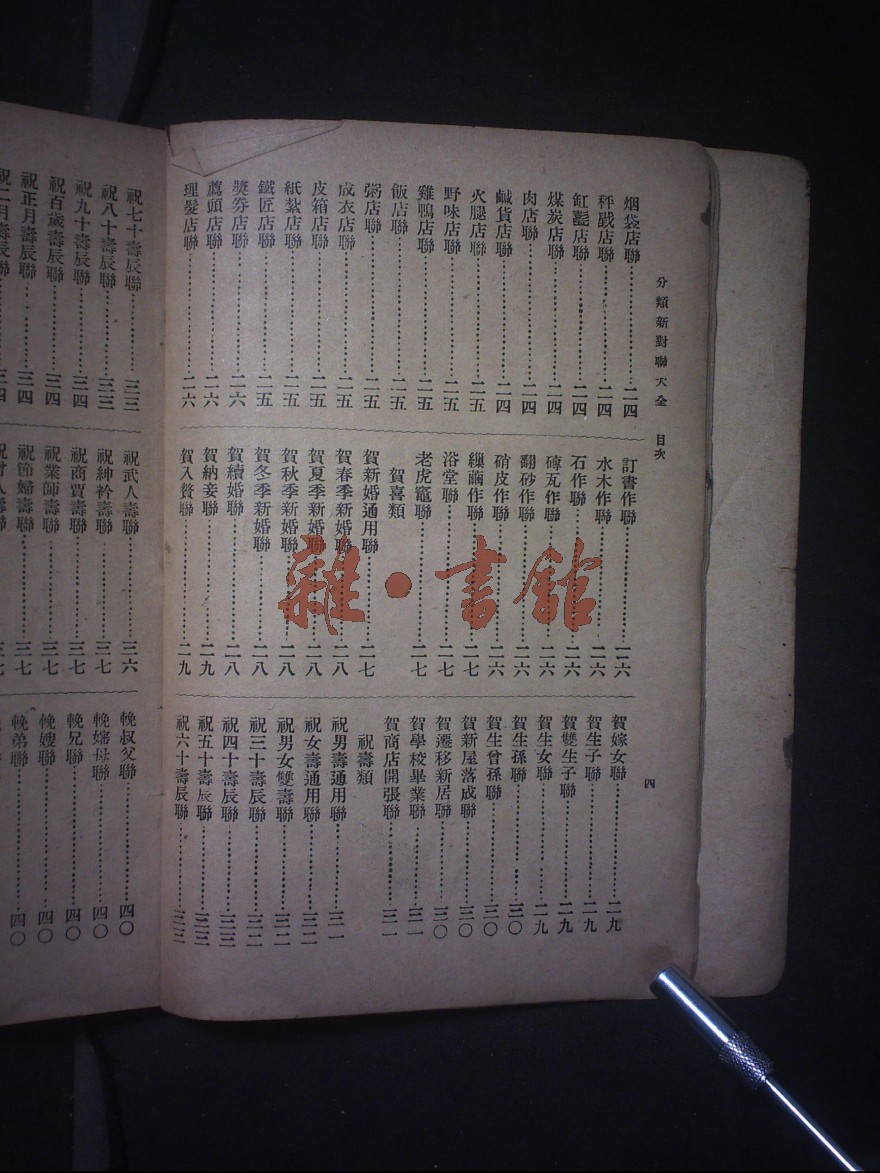 分類新對聯大全 目次
四
烟袋店聯 二四
秤戥店聯 二四
缸甏店聯 二四
煤炭店聯 二四
肉店聯 二四
鹹貨店聯 二四
火腿店聯 二五
野味店聯 二五
雞鴨店聯 二五
飯店聯 二五
粥店聯 二五
成衣店聯 二五
皮箱店聯 二五
紙紮店聯 二五
鐵匠店聯 二五
獎券店聯 二六
薦頭店聯 二六
理髮店聯 二六
訂書作聯 二六
水木作聯 二六
石作聯 二六
磚瓦作聯 二六
翻砂作聯 二六
硝皮作聯 二六
繅繭作聯 二七
浴堂聯 二七
老虎竈聯 二七
賀喜類
賀新婚通用聯 二七
賀春季新婚聯 二八
賀夏季新婚聯 二八
賀秋季新婚聯 二八
賀冬季新婚聯 二八
賀續婚聯 二八
賀納妾聯 二九
賀入贅聯 二九
賀嫁女聯 二九
賀生子聯 二九
賀雙生子聯 二九
賀生女聯 二九
賀生孫聯 三〇
賀生曾孫聯 三〇
賀新屋落成聯 三〇
賀遷移新居聯 三〇
賀學校畢業聯 三一
賀商店開張聯 三一
祝壽類
祝男壽通用聯 三一
祝女壽通用聯 三二
祝男女雙壽聯 三二
祝三十壽辰聯 三二
祝四十壽辰聯 三三
祝五十壽辰聯 三三
祝六十壽辰聯 三三
祝七十壽辰聯 三三
祝八十壽辰聯 三三
祝九十壽辰聯 三四
祝百歲壽辰聯 三四
祝正月壽辰聯 三四
祝二月壽辰聯 三四
祝武人壽聯 三六
祝紳衿壽聯 三七
祝商賈壽聯 三七
祝業師壽聯 三七
祝節婦壽聯 三七
輓叔父聯 四〇
輓嬸母聯 四〇
輓兄聯 四〇
輓嫂聯 四〇
輓弟聯 四〇
雜·書館